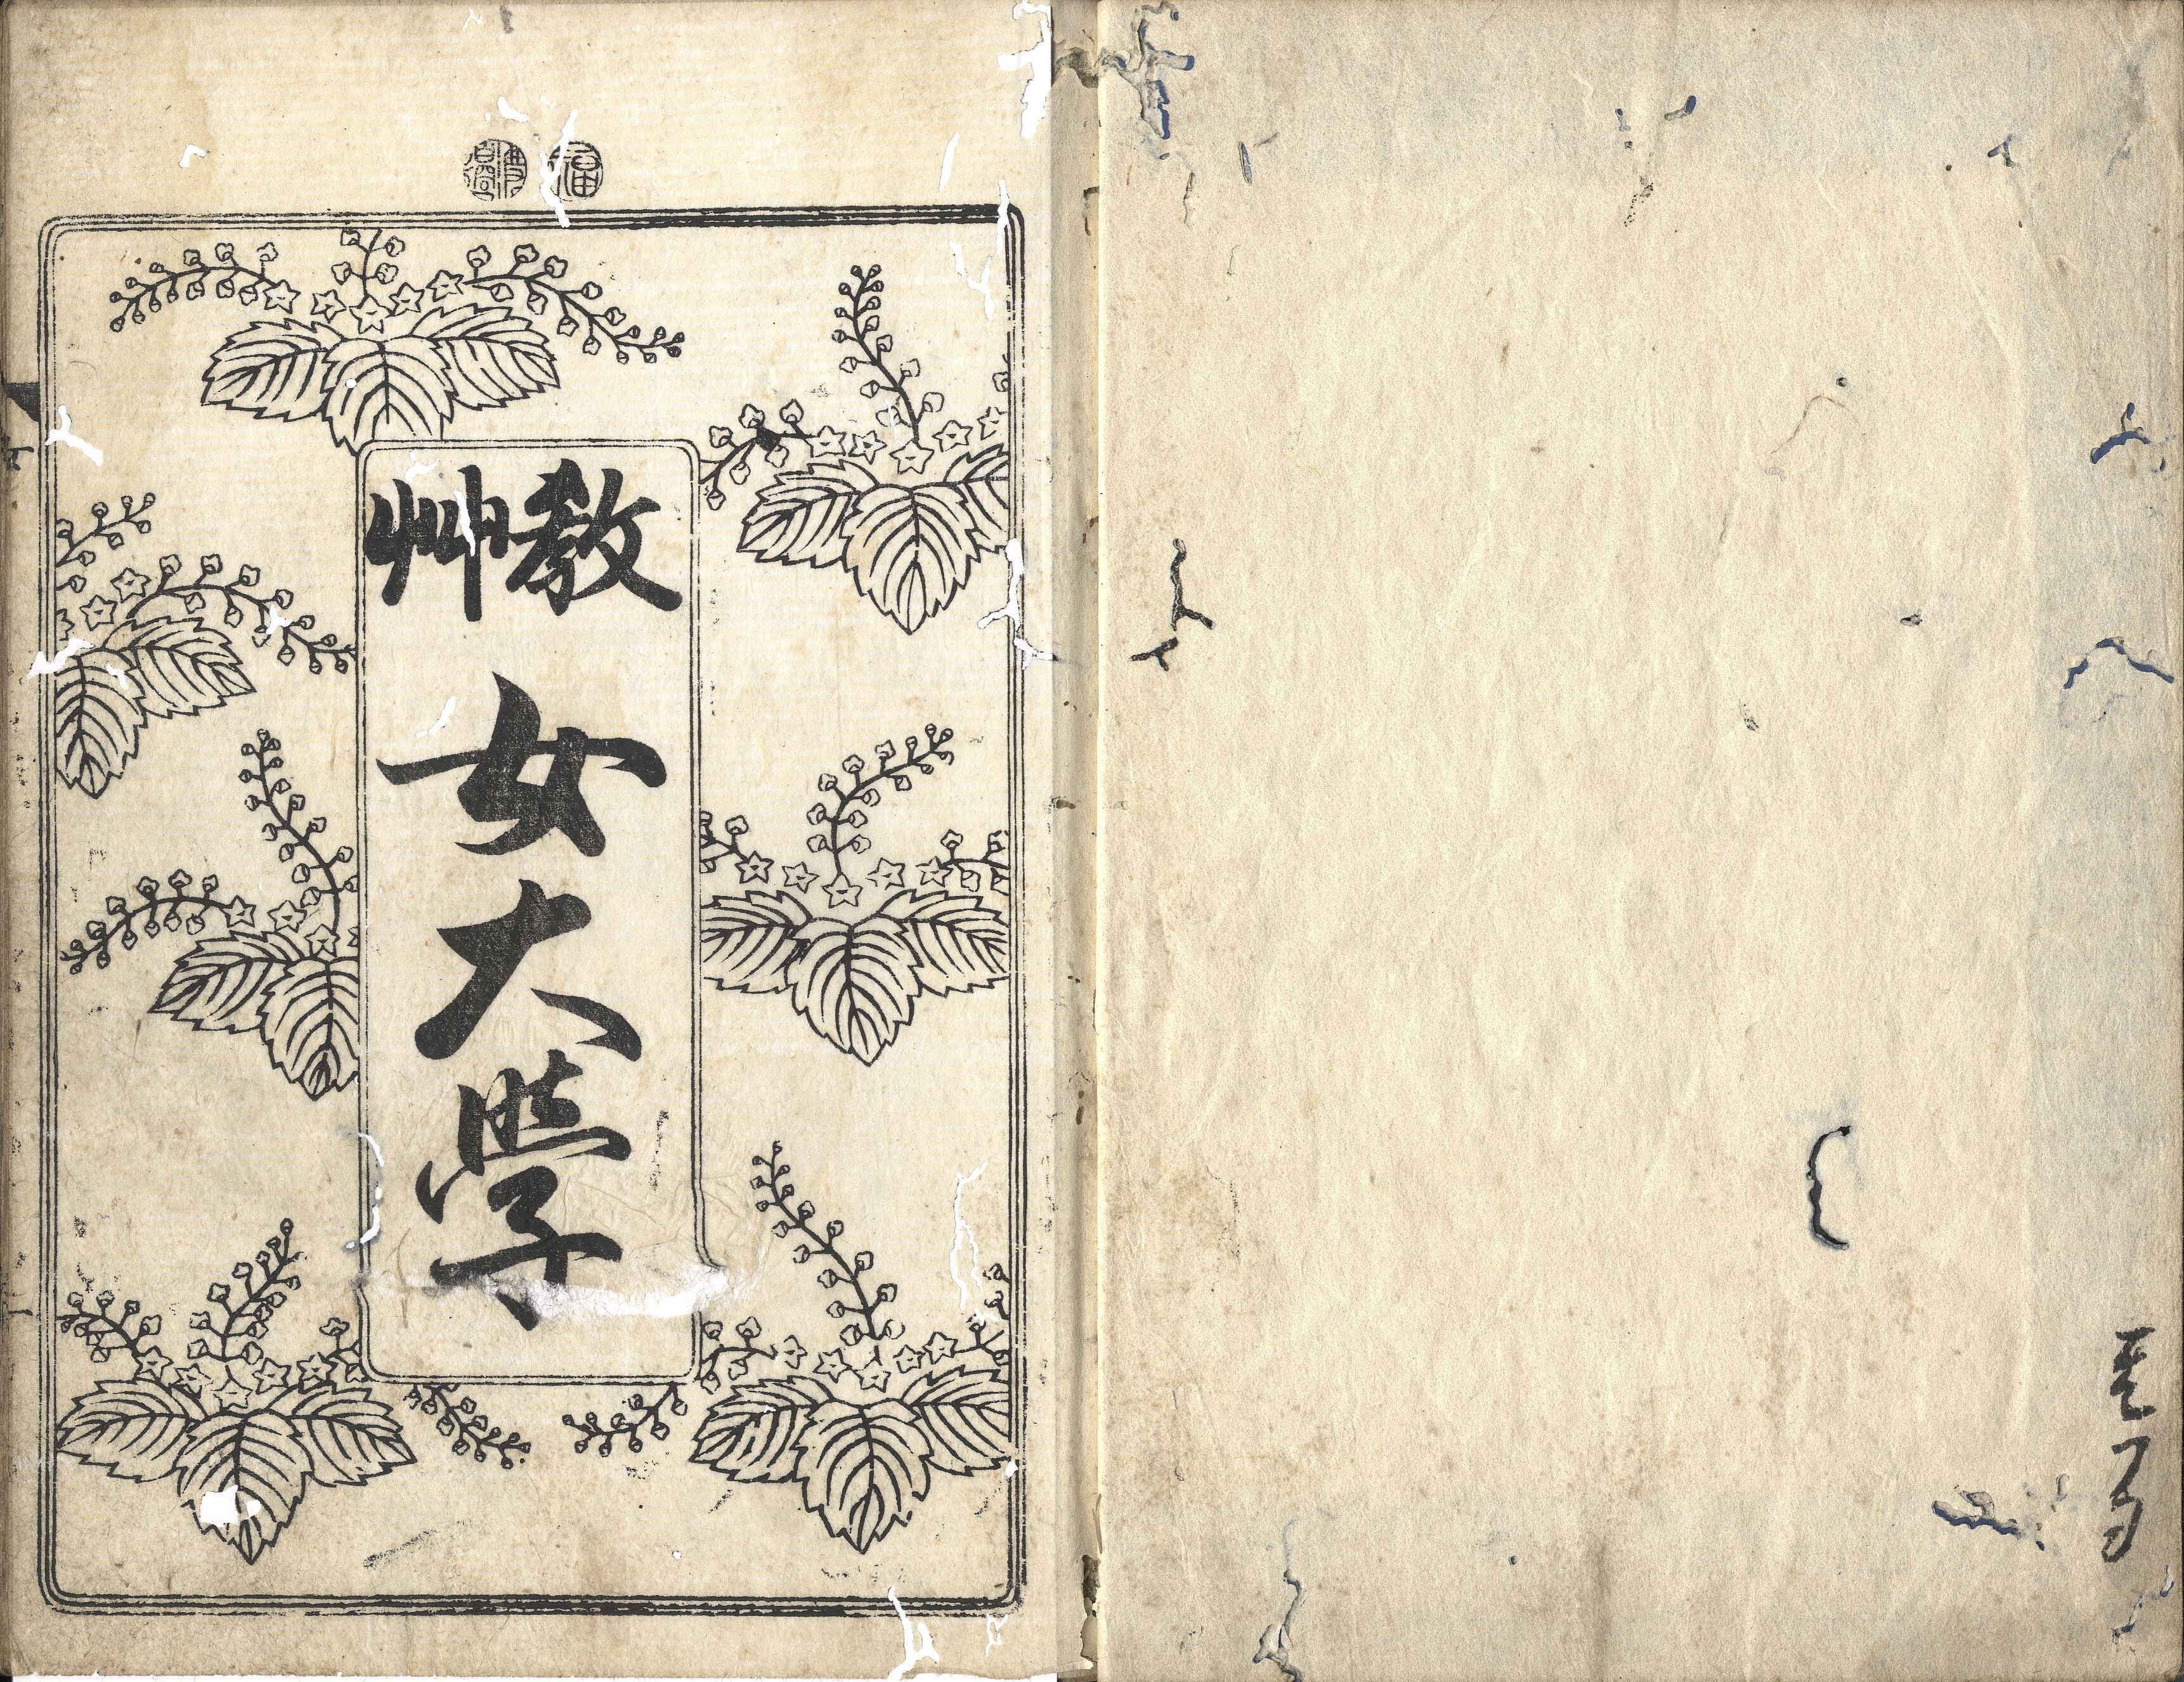 教艸
女大學